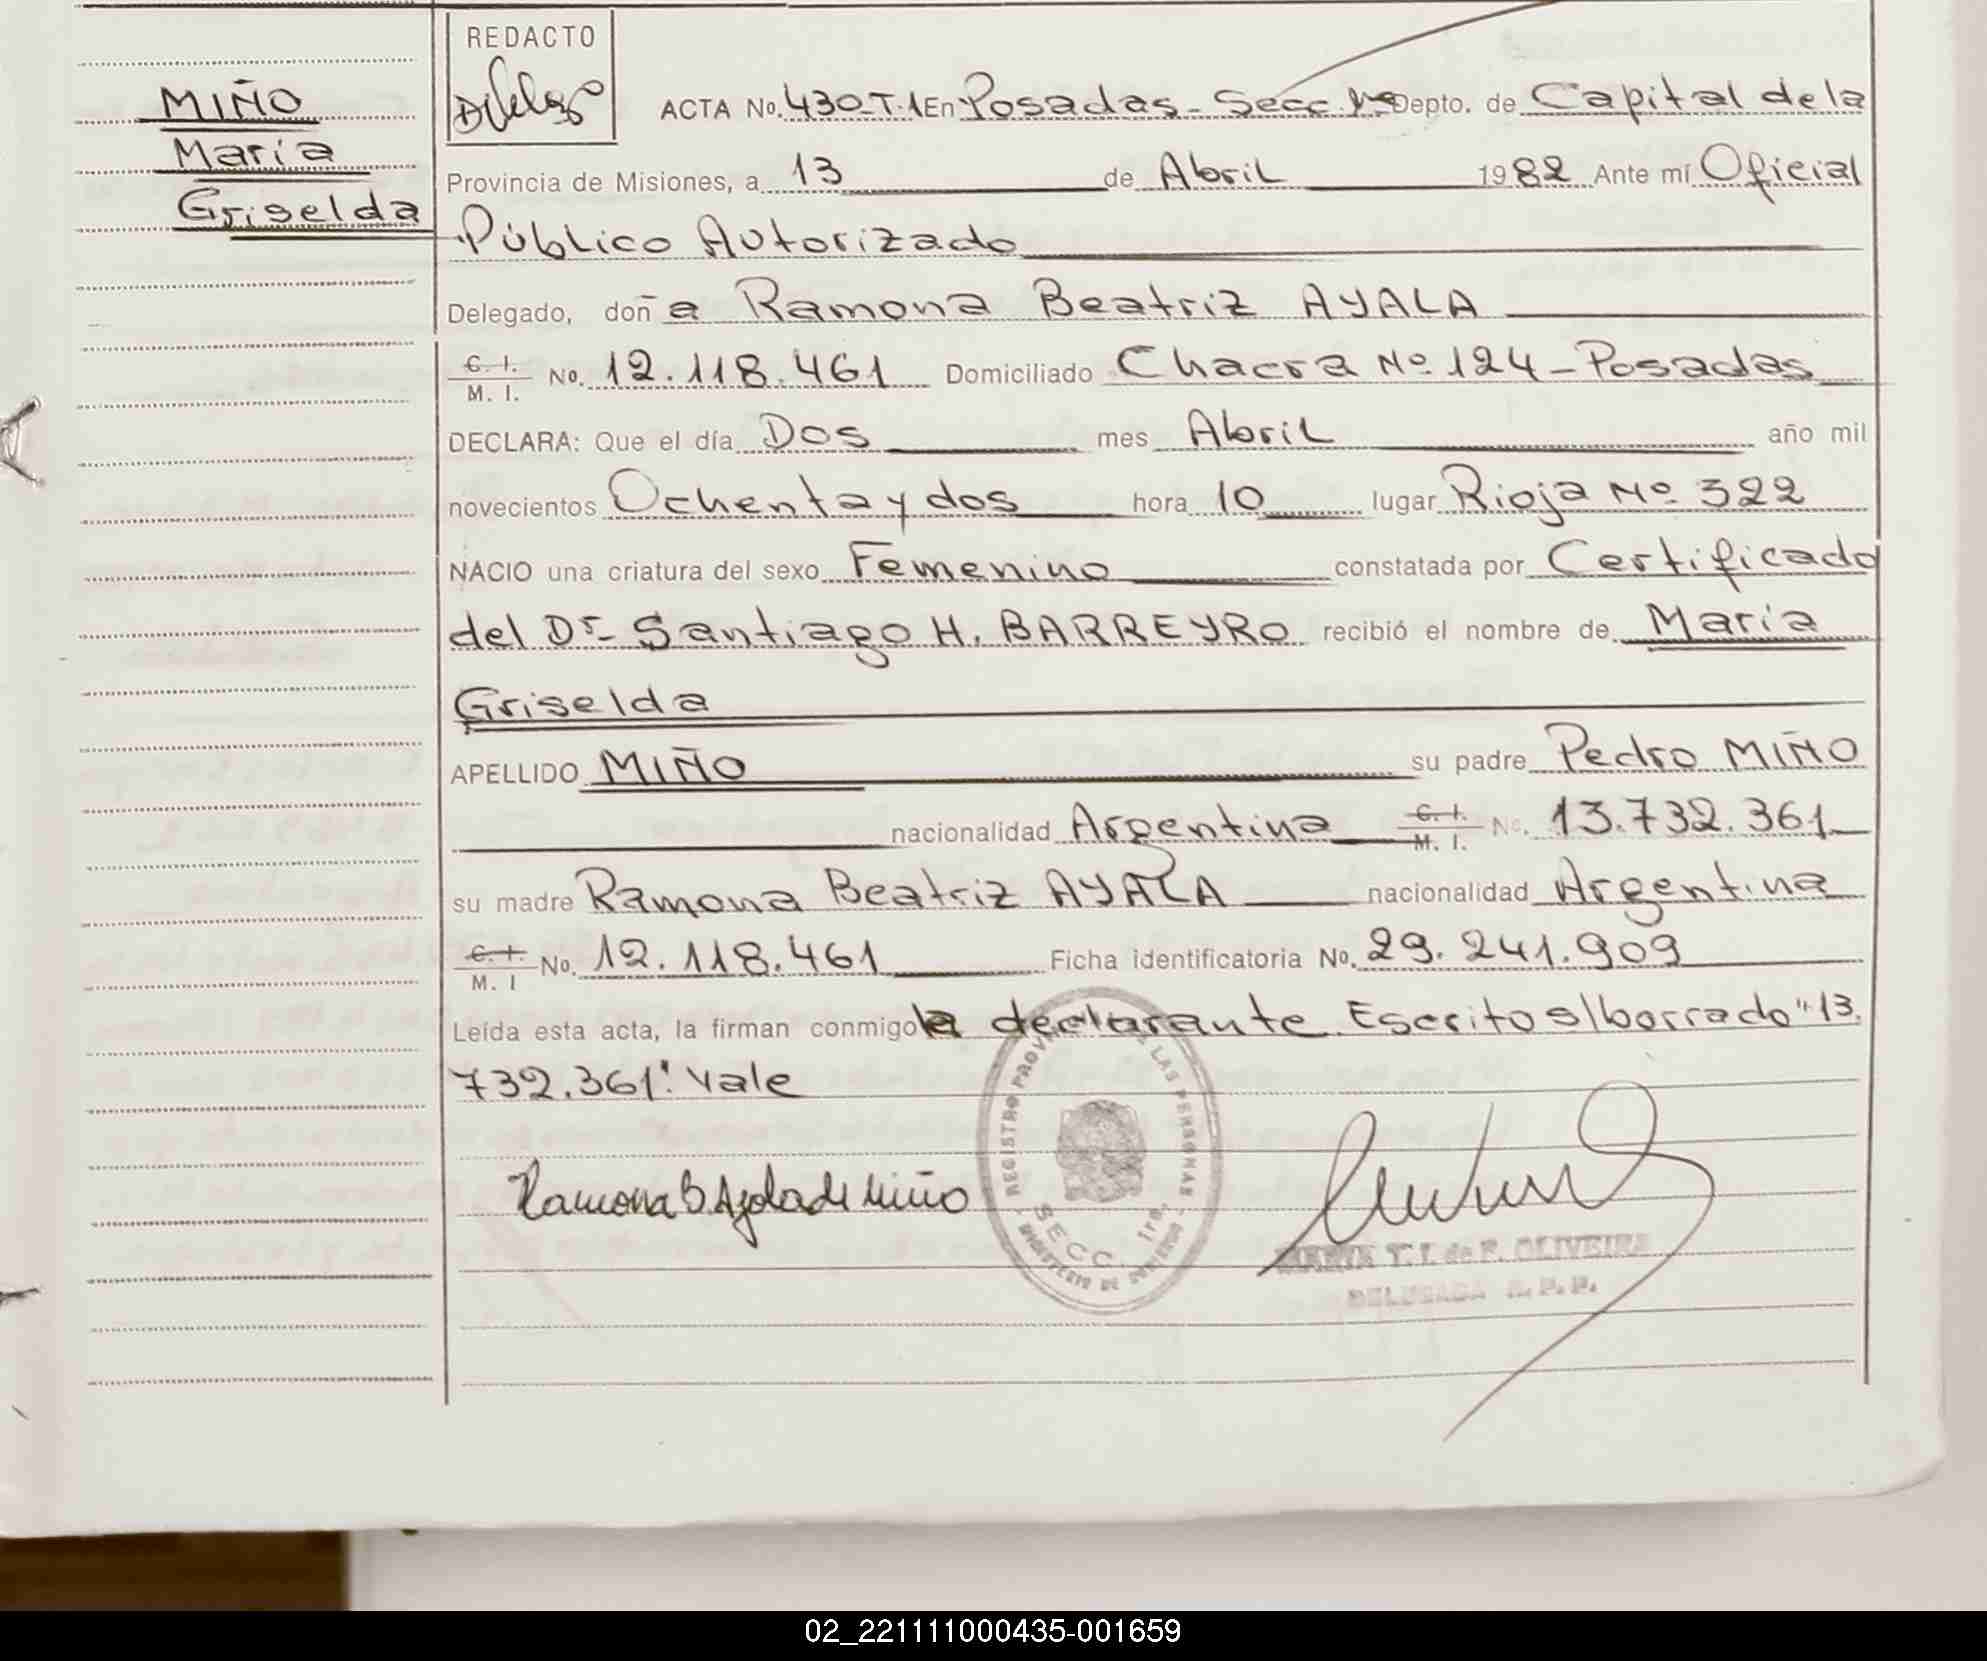 REDACTO
MIÑO
María
Griselda
ACTA No. 430-T.1 En Posadas - Secc. Depto. de Capital de la
Provincia de Misiones, a 13 de Abril 1982 Ante mí Oficial
Público Autorizado
Delegado, doñ a Ramona Beatriz AYALA
C. I. M. I. No. 12.118.461 Domiciliado Chacra Nº 124 - Posadas
DECLARA: Que el día Dos mes Abril año mil
novecientos Ochenta y dos hora 10 lugar Rioja Nº 322
NACIO una criatura del sexo Femenino constatada por Certificado
del Dr. Santiago H. BARREYRO recibió el nombre de María
Griselda
APELLIDO MIÑO su padre Pedro MIÑO
nacionalidad Argentina C. I. M. I. No. 13.732.361
su madre Ramona Beatriz AYALA nacionalidad Argentina
C. I. M. I No. 12.118.461 Ficha identificatoria No. 29.241.909
Leída esta acta, la firman conmigo la declarante. Escrito s/borrado "13.
732.361". Vale
Ramona B Ayala de Miño
REGISTRO PROV LAS PERSONAS
SECC. 1ra.
MINISTERIO DE GOBIERNO
MARIA T. I. de F. OLIVEIRA
DELEGADA R. P. P.
02_221111000435-001659